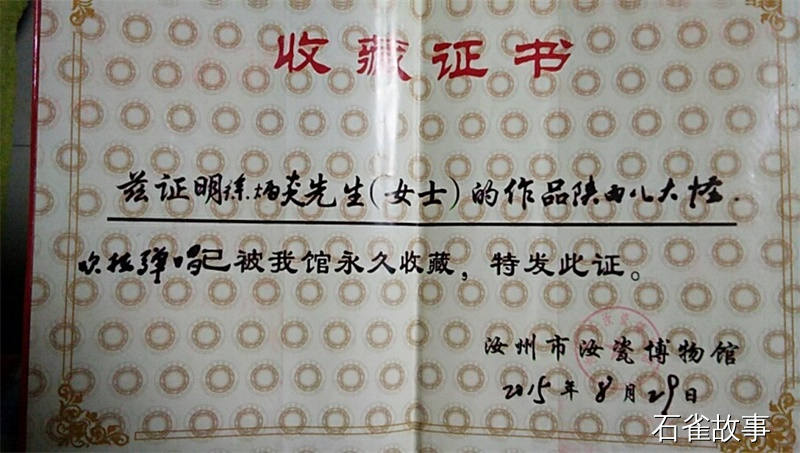 收藏证书
兹证明徐炳炎先生(女士)的作品陕西八大怪.
吹拉弹唱已被我馆永久收藏，特发此证。
汝州市汝瓷博物馆
2015年8月29日
石雀故事